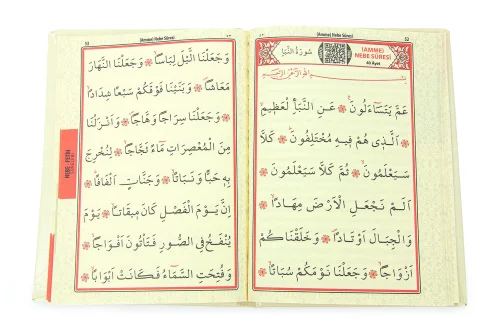 52
(Amme) Nebe Sûresi
(AMME)
NEBE SÛRESİ
40 Ayet
سُورَةُ النَّبَأِ
عَمَّ يَتَسَٓاءَلُونَۚ عَنِ النَّبَأِ الْعَظ۪يمِۙ
اَلَّذ۪ي هُمْ ف۪يهِ مُخْتَلِفُونَۜ كَلَّا
سَيَعْلَمُونَۙ ثُمَّ كَلَّا سَيَعْلَمُونَ
اَلَمْ نَجْعَلِ الْاَرْضَ مِهَادًاۙ
وَالْجِبَالَ اَوْتَادًاۙ وَخَلَقْنَاكُمْ
اَزْوَاجًاۙ وَجَعَلْنَا نَوْمَكُمْ سُبَاتًاۙ
(Amme) Nebe Sûresi
53
وَجَعَلْنَا الَّيْلَ لِبَاسًاۙ وَجَعَلْنَا النَّهَارَ
مَعَاشًاۖ وَبَنَيْنَا فَوْقَكُمْ سَبْعًا شِدَادًاۙ
وَجَعَلْنَا سِرَاجًا وَهَّاجًاۖ وَاَنْزَلْنَا
مِنَ الْمُعْصِرَاتِ مَٓاءً ثَجَّاجًاۙ لِنُخْرِجَ
بِه۪ حَبًّا وَنَبَاتًاۙ وَجَنَّاتٍ اَلْفَافًاۜ
اِنَّ يَوْمَ الْفَصْلِ كَانَ م۪يقَاتًاۙ يَوْمَ
يُنْفَخُ فِي الصُّورِ فَتَأْتُونَ اَفْوَاجًاۙ
وَفُتِحَتِ السَّمَٓاءُ فَكَانَتْ اَبْوَابًاۙ